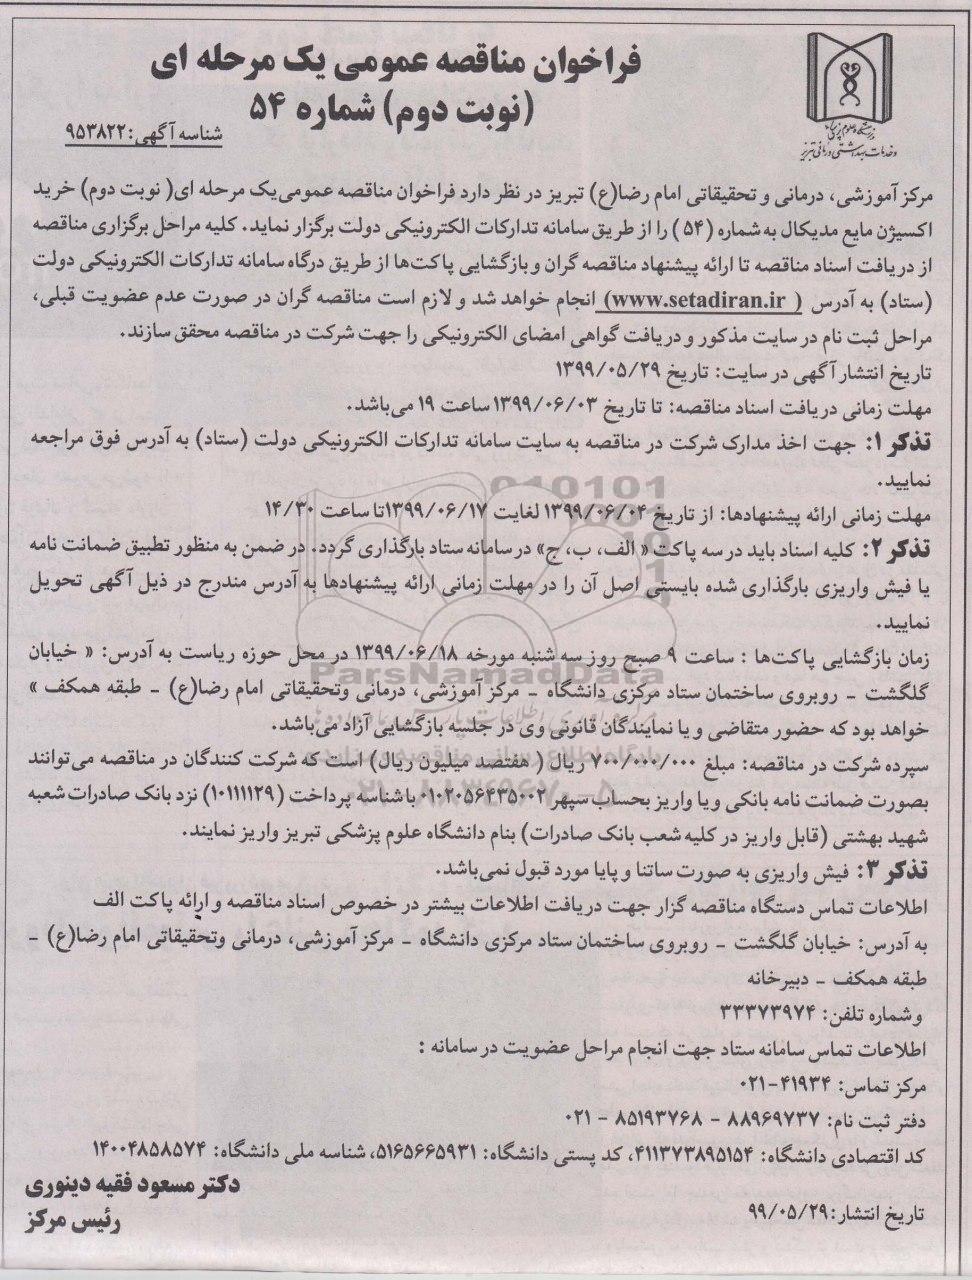 فراخوان مناقصه عمومی یک مرحله ای
(نوبت دوم) شماره ۵۴
شناسه آگهی: ۹۵۳۸۲۲
دانشگاه علوم پزشکی
و خدمات بهداشتی درمانی تبریز
مرکز آموزشی، درمانی و تحقیقاتی امام رضا(ع) تبریز در نظر دارد فراخوان مناقصه عمومی یک مرحله ای( نوبت دوم) خرید
اکسیژن مایع مدیکال به شماره (۵۴ ) را از طریق سامانه تدارکات الکترونیکی دولت برگزار نماید. کلیه مراحل برگزاری مناقصه
از دریافت اسناد مناقصه تا ارائه پیشنهاد مناقصه گران و بازگشایی پاکت‌ها از طریق درگاه سامانه تدارکات الکترونیکی دولت
(ستاد) به آدرس ( www.setadiran.ir) انجام خواهد شد و لازم است مناقصه گران در صورت عدم عضویت قبلی،
مراحل ثبت نام در سایت مذکور و دریافت گواهی امضای الکترونیکی را جهت شرکت در مناقصه محقق سازند.
تاریخ انتشار آگهی در سایت: تاریخ ۱۳۹۹/۰۵/۲۹
مهلت زمانی دریافت اسناد مناقصه: تا تاریخ ۱۳۹۹/۰۶/۰۳ ساعت ۱۹ می‌باشد.
تذکر ۱: جهت اخذ مدارک شرکت در مناقصه به سایت سامانه تدارکات الکترونیکی دولت (ستاد) به آدرس فوق مراجعه
نمایید.
مهلت زمانی ارائه پیشنهادها: از تاریخ ۱۳۹۹/۰۶/۰۴ لغایت ۱۳۹۹/۰۶/۱۷تا ساعت ۱۴/۳۰
تذکر ۲: کلیه اسناد باید در سه پاکت « الف، ب، ج» در سامانه ستاد بارگذاری گردد. در ضمن به منظور تطبیق ضمانت نامه
یا فیش واریزی بارگذاری شده بایستی اصل آن را در مهلت زمانی ارائه پیشنهادها به آدرس مندرج در ذیل آگهی تحویل
نمایید.
زمان بازگشایی پاکت‌ها : ساعت ۹ صبح روز سه شنبه مورخه ۱۳۹۹/۰۶/۱۸ در محل حوزه ریاست به آدرس: « خیابان
گلگشت – روبروی ساختمان ستاد مرکزی دانشگاه – مرکز آموزشی، درمانی وتحقیقاتی امام رضا(ع) – طبقه همکف »
خواهد بود که حضور متقاضی و یا نمایندگان قانونی وی در جلسه بازگشایی آزاد می‌باشد.
سپرده شرکت در مناقصه: مبلغ ۷۰۰/۰۰۰/۰۰۰ ریال ( هفتصد میلیون ریال) است که شرکت کنندگان در مناقصه می‌توانند
بصورت ضمانت نامه بانکی و یا واریز بحساب سپهر ۰۱۰۲۰۵۶۴۳۵۰۰۲ با شناسه پرداخت (۱۰۱۱۱۱۲۹) نزد بانک صادرات شعبه
شهید بهشتی (قابل واریز در کلیه شعب بانک صادرات) بنام دانشگاه علوم پزشکی تبریز واریز نمایند.
تذکر ۳: فیش واریزی به صورت ساتنا و پایا مورد قبول نمی‌باشد.
اطلاعات تماس دستگاه مناقصه گزار جهت دریافت اطلاعات بیشتر در خصوص اسناد مناقصه و ارائه پاکت الف
به آدرس: خیابان گلگشت – روبروی ساختمان ستاد مرکزی دانشگاه – مرکز آموزشی، درمانی وتحقیقاتی امام رضا(ع) –
طبقه همکف – دبیرخانه
وشماره تلفن: ۳۳۳۷۳۹۷۴
اطلاعات تماس سامانه ستاد جهت انجام مراحل عضویت در سامانه :
مرکز تماس: ۴۱۹۳۴-۰۲۱
دفتر ثبت نام: ۸۸۹۶۹۷۳۷ – ۸۵۱۹۳۷۶۸ – ۰۲۱
کد اقتصادی دانشگاه: ۴۱۱۳۷۳۸۹۵۱۵۴، کد پستی دانشگاه: ۵۱۶۵۶۶۵۹۳۱، شناسه ملی دانشگاه: ۱۴۰۰۴۸۵۸۵۷۴
دکتر مسعود فقیه دینوری
رئیس مرکز
تاریخ انتشار: ۹۹/۰۵/۲۹
ParsNamadData